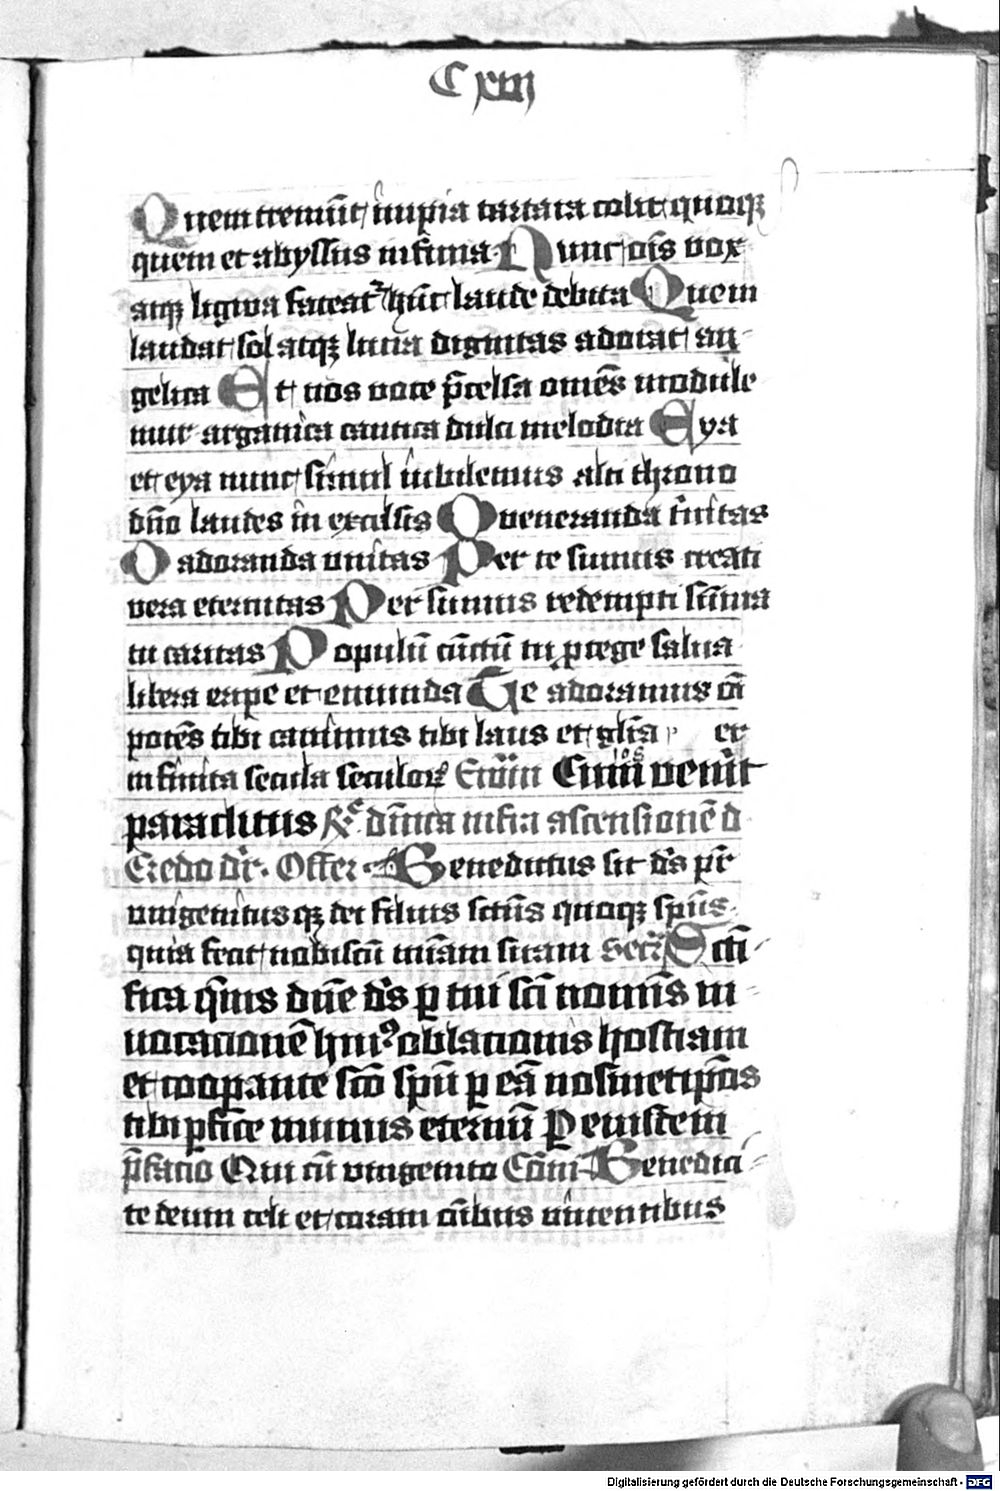 C xiij
Quem tremūt impia tartara colit quoqꝫ
quem et abyssus infima Nunc oīs vox
atqꝫ ligwa fateat᷑ hūc laude debita Quem
laudat sol atqꝫ luna dignitas adorat an-
gelica Et nos voce p̄celsa omēs module
mur arganica cantica dulci melodia Eya
et eya nunc simul iubilemus alti throno
dn̄o laudes in excelsis O veneranda tⁱnitas
O adoranda vnitas Per te sumus creati
vera eternitas Per sumus redempti sūma
tu caritas Populū cūctū tu ꝓtege salua
libera eripe et emunda Te adoramus oī
potēs tibi canimus tibi laus et gl̄ia per
infinita secula seculoꝝ Ewm Cum venerit
paraclitus Rͤ dn̄ica infra ascensionē d
Credo dr̄. Offer Benedictus sit dˀs pr̄
vnigenitus qꝫ dei filius sctūs quoqꝫ spūs
quia fecit nobiscū mīam suam Secr̄ Scti-
fica qs̄ dn̄e dˀs ꝑ tui sci noīs in-
uocacionē huiꝰ oblationis hostiam
et coopante sco spū ꝑ eā nosmetipos
tibi ꝑfice munus eternū P eiusdem
p̄facio Qui cū vnigenito Cōm Benedici-
te deum celi et coram oībus viuentibus
Digitalisierung gefördert durch die Deutsche Forschungsgemeinschaft - DFG